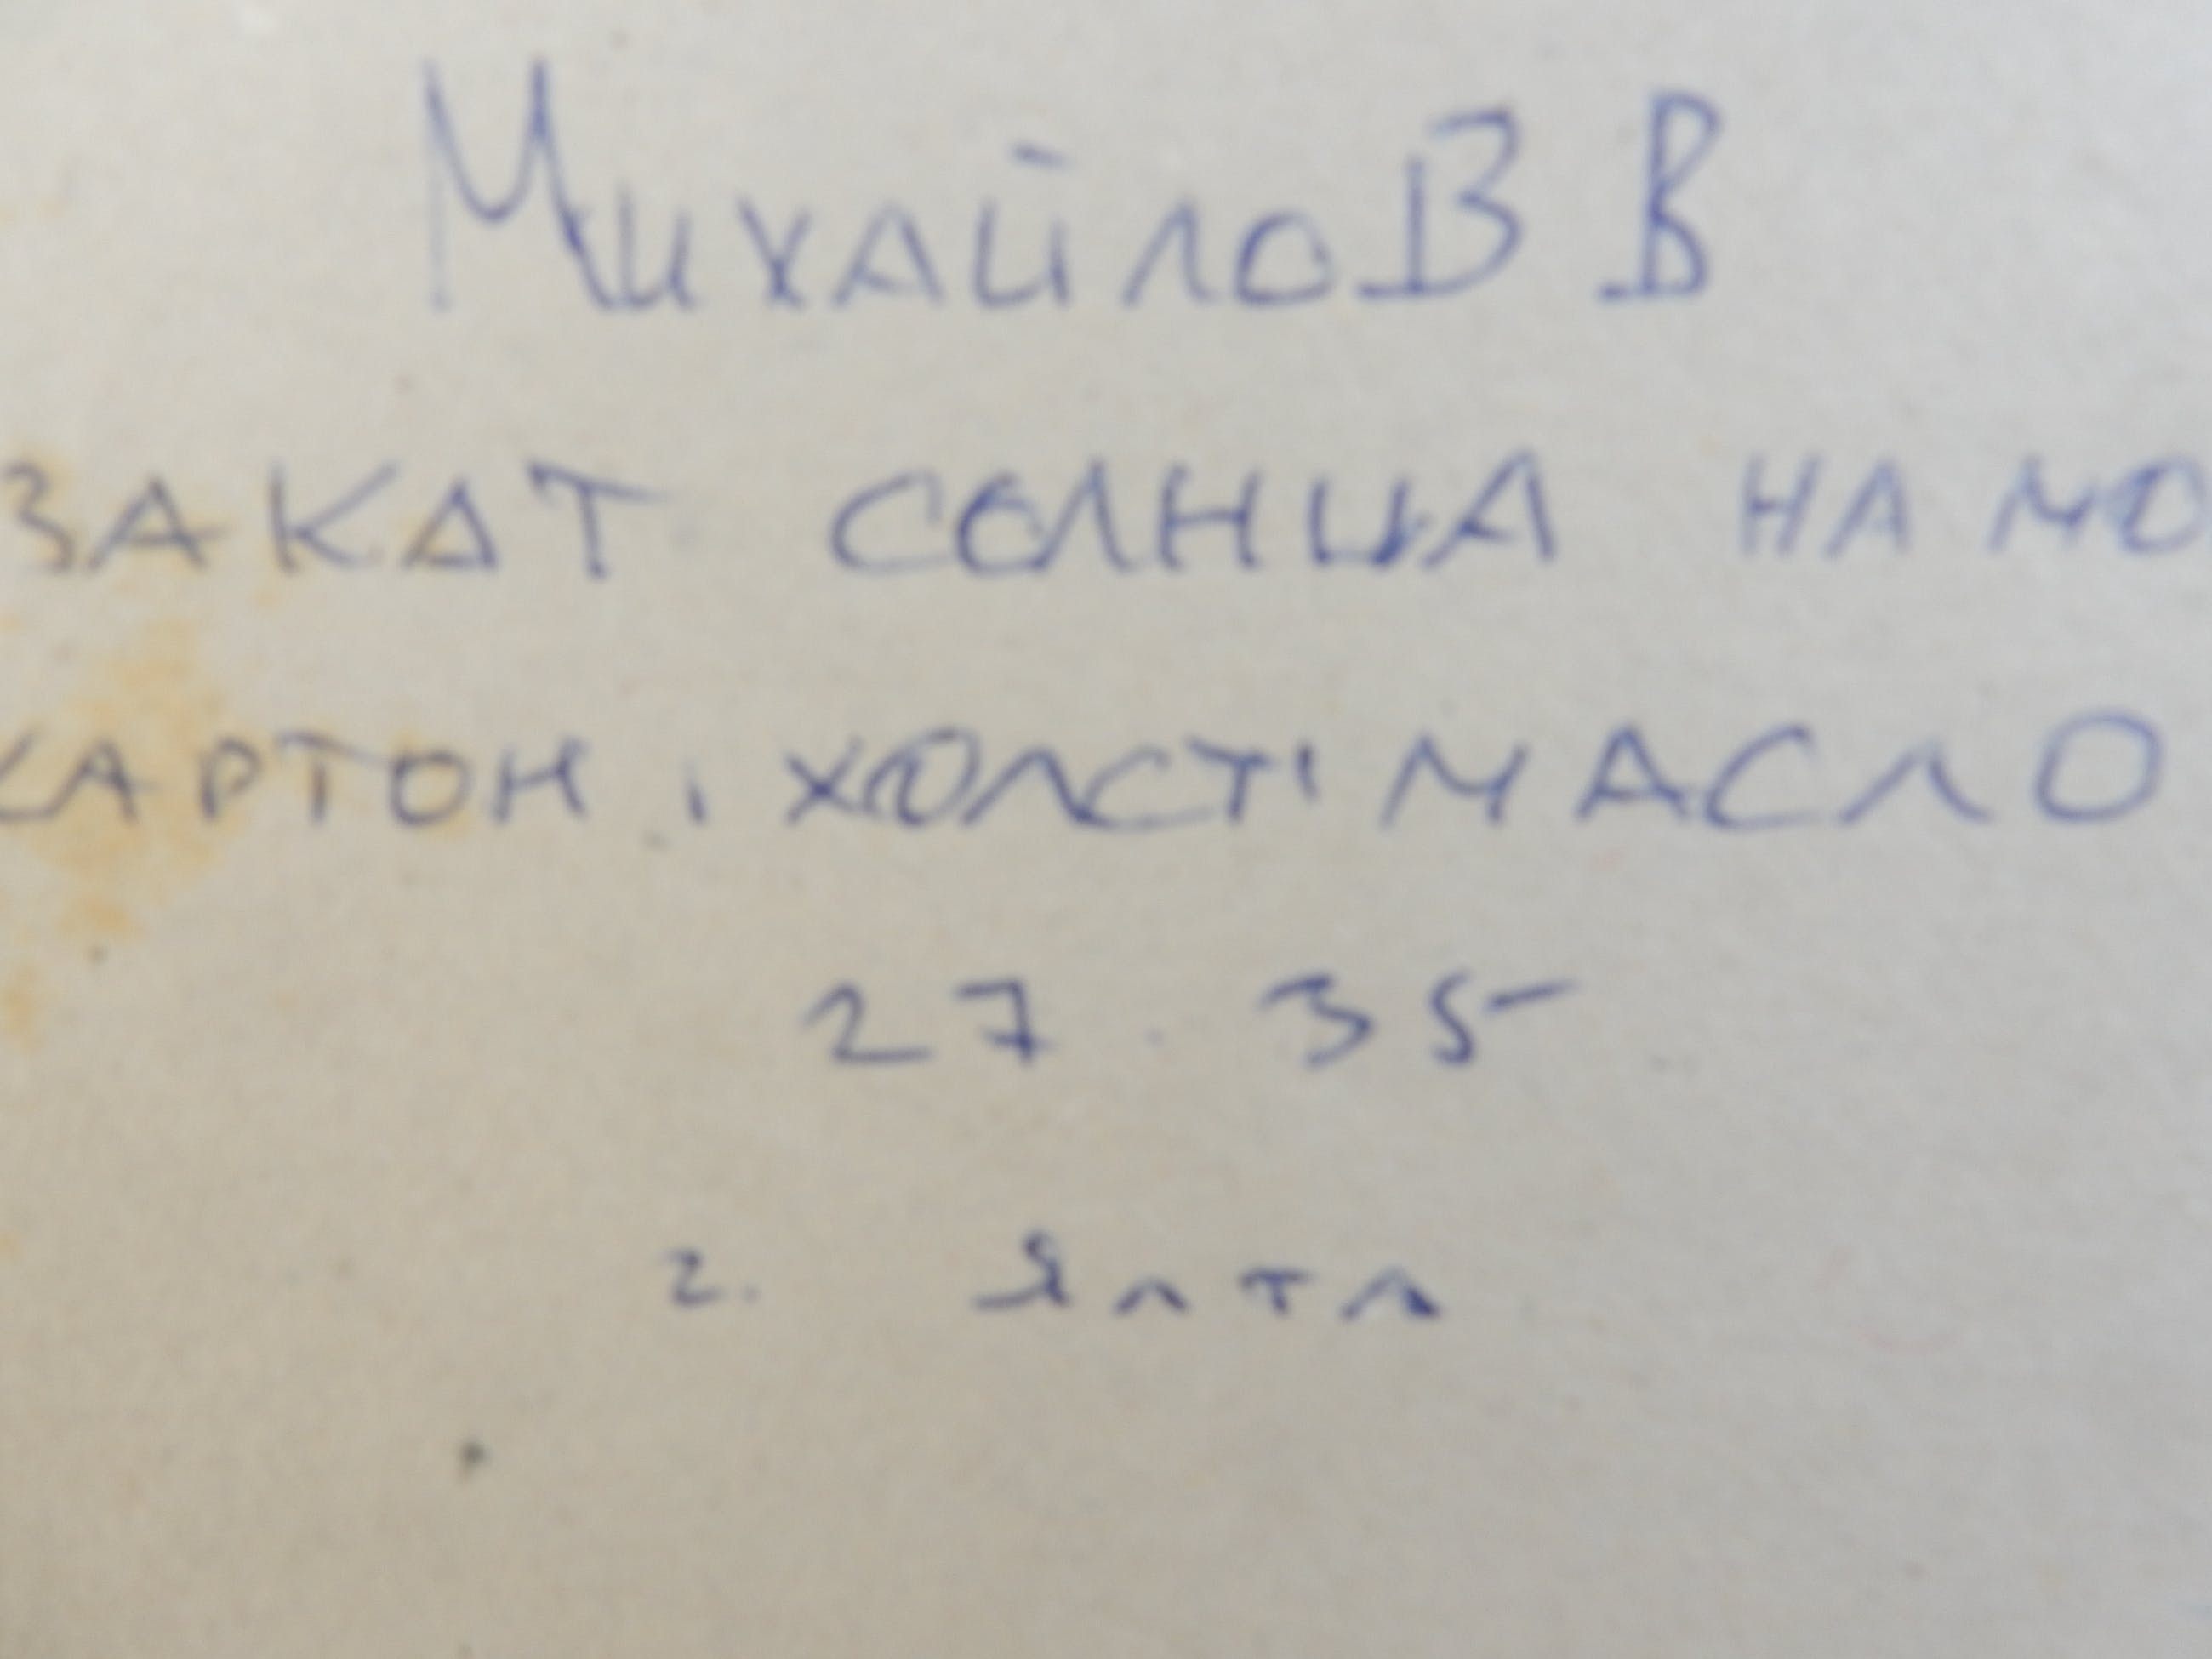 Михайлов В
ЗАКАТ СОЛНЦА НА МО
КАРТОН, ХОЛСТ, МАСЛО
27. 35
г. Ялта